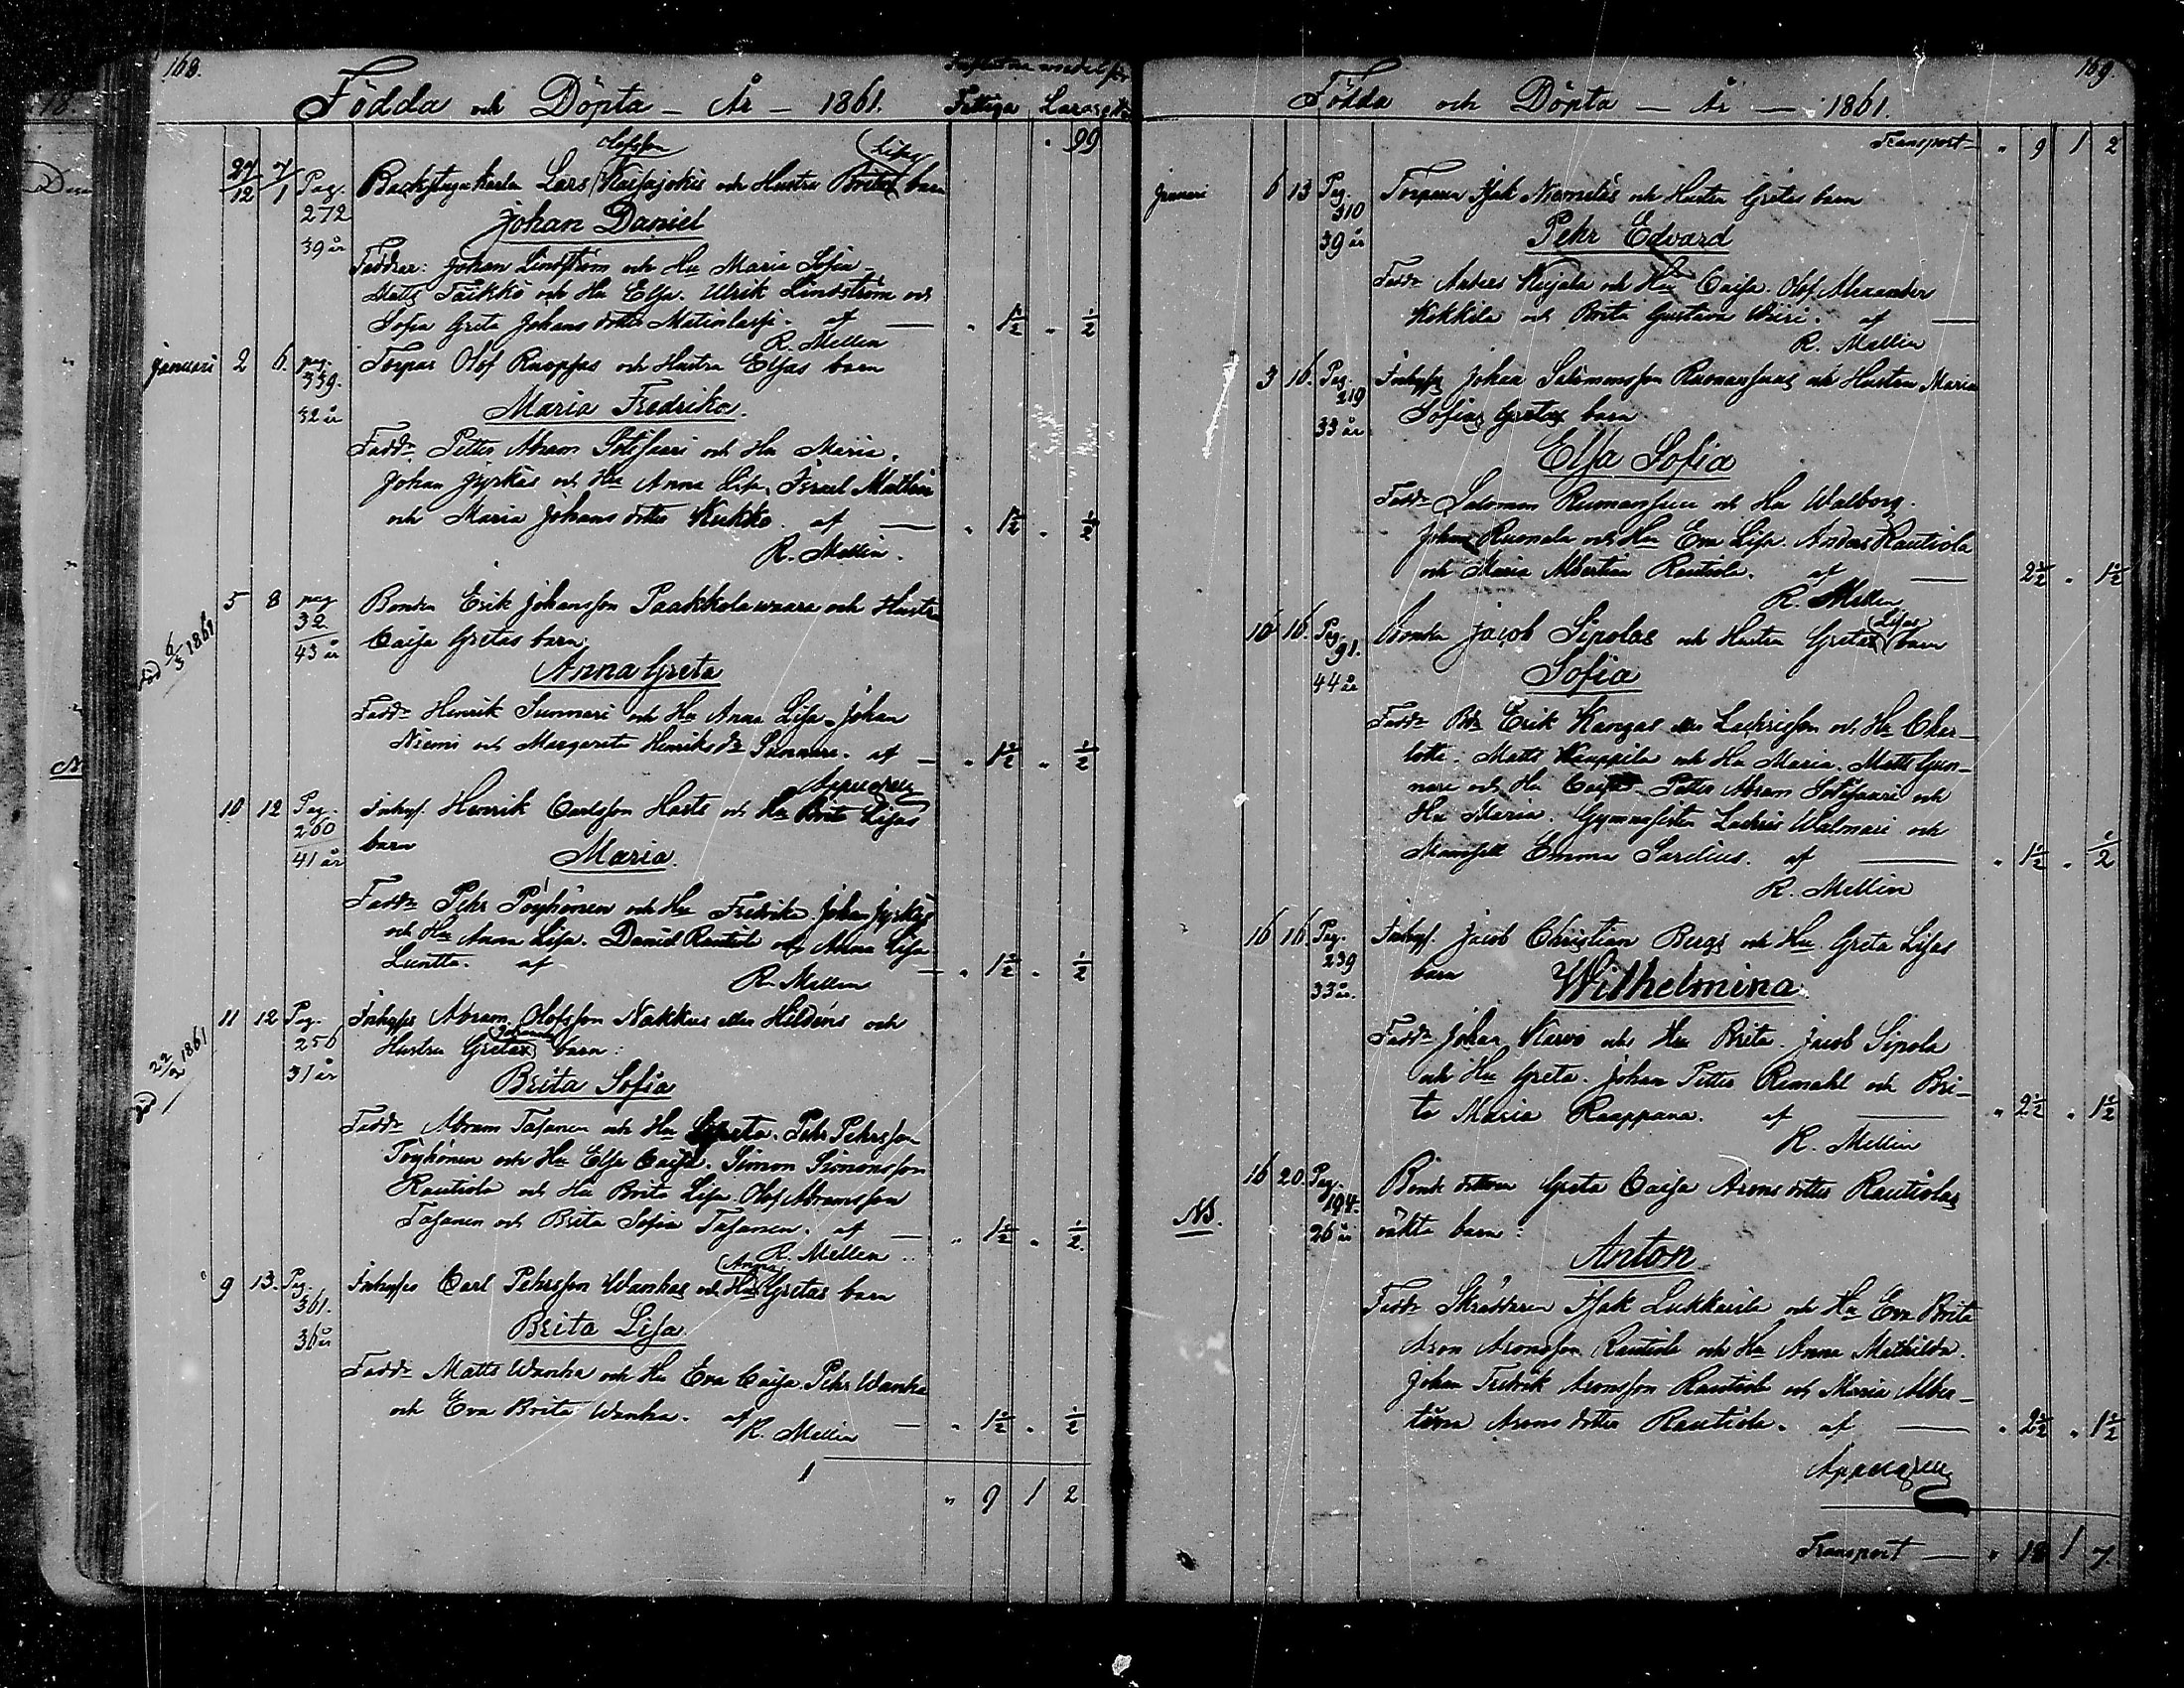 168.
Födda och Döpta - År - 1861.
Fattiga Lazarette
99
27/12 7/1 Pag. 272 39 år
Olofsson Lisas
Backstugukarlen Lars och Hustru Britas barn
Johan Daniel
Faddrar: Johan Lindström och Hu Maria Sofia
Matts och Hu Elsa. Ulrik Lindström och
Sofia Greta Johans dotter af — " 1 1/2 " 1/2
R. Mellin
Januari 2 6. pag. 339. 32 år
Torpar Olof och Hustru Elsas barn
Maria Fredrika.
Fadd: Petter Abram och Hu Maria.
Johan Jyrkäs och Hu Anna Lisa, Israel
och Maria Johans dotter Kukko. af — " 1 1/2 " 1/2
R. Mellin.
5 8 pag 32 43 år
död 6/3 1861
Bonden Erik Johansson Paakkolawaara och Hustr
Caisa Gretas barn
Anna Greta
Fadd: Henrik Sunnari och Hu Anna Lisa. Johan
Niemi och Margareta Henriksdr Sunnari. af — " 1 1/2 " 1/2
Appelgren
10 12 Pag. 260 41 år
Inhys. Henrik Carlsson och Hu Brita Lisas
barn Maria.
Fadd: Pehr Pöyhönen och Hu Fredrika. Johan Jyrkäs
och Hu Anna Lisa. Daniel och Anna Lisa
Luntta. af — " 1 1/2 " 1/2
R. Mellin
11 12 Pag. 256 31 år
död 22/2 1861
Inhyses Abram Olofsson Nakkus eller Hildéns och
Hustru Gretas barn:
Brita Sofia
Fadd: Abram Tasanen och Hu Greta. Pehr Pehrsson
Pöyhönen och Hu Elsa Caisa. Simon Simonsson
Rautiola och Hu Brita Lisa. Olof Abramsson
Tasanen och Brita Sofia Tasanen. af — " 1 1/2 " 1/2
R. Mellin
Anna
9 13. Pag. 361. 36 år
Inhyses Carl Pehrsson Wanhas och Hu Gretas barn
Brita Lisa
Fadd: Matts Wanha och Hu Eva Caisa. Pehr Wanha
och Eva Brita Wanha. af — " 1 1/2 " 1/2
R. Mellin
" 9 1 2
169.
Födda och Döpta — År — 1861.
Transport " 9 1 2
Januari 6 13 Pag. 310 39 år
Torparen Isak och Hustru Gretas barn
Pehr Edvard
Fadd: Anders Kujala och Hu Caisa. Olof Alexander
Kokkila och Brita Gustava af —
R. Mellin
3 16. Pag. 219 33 år
Inhyses Johan Salomonsson och Hustru Maria
Sofias Gretas barn
Elsa Sofia
Fadd: Salomon och Hu Walborg.
Johan Ruonala och Hu Eva Lisa. Anders Rautiola
och Maria Albertina Rautiola. af — 2 1/2 " 1 1/2
R. Mellin
Lisas
10 16. Pag. 91. 44 år
Bonden Jacob Sipolas och Hustru Gretas barn
Sofia
Fadd: Erik Kangas eller och Hu Char-
lotta. Matts Kauppila och Hu Maria. Matts Gun-
nari och Hu Caisa. Petter Abram och
Hu Maria. Gymnasisten Walmari och
Mamsell Emma Sarelius. af — " 1 1/2 " 1/2
R. Mellin
16 16. Pag. 239 33 år.
Inhys. Jacob Christian Bergs och Hu Greta Lisas
barn Wilhelmina.
Fadd: Johan Karvo och Hu Brita. Jacob Sipola
och Hu Greta. Johan Petter och Bri-
ta Maria Raappana. af — " 2 1/2 " 1 1/2
R. Mellin
NB. 16 20. Pag. 194. 26 år
Bonde dottren Greta Caisa Arons dotter Rautiolas
oäkta barn:
Anton
Fadd: Skräddaren Isak Lukkarila och Hu Eva Brita
Aron Aronsson Rautiola och Hu Anna Mathilda.
Johan Fredrik Aronsson Rautiola och Maria Alber-
tina Arons dotter Rautiola. af — " 2 1/2 " 1 1/2
Appelgren
Transport — " 18 1 7